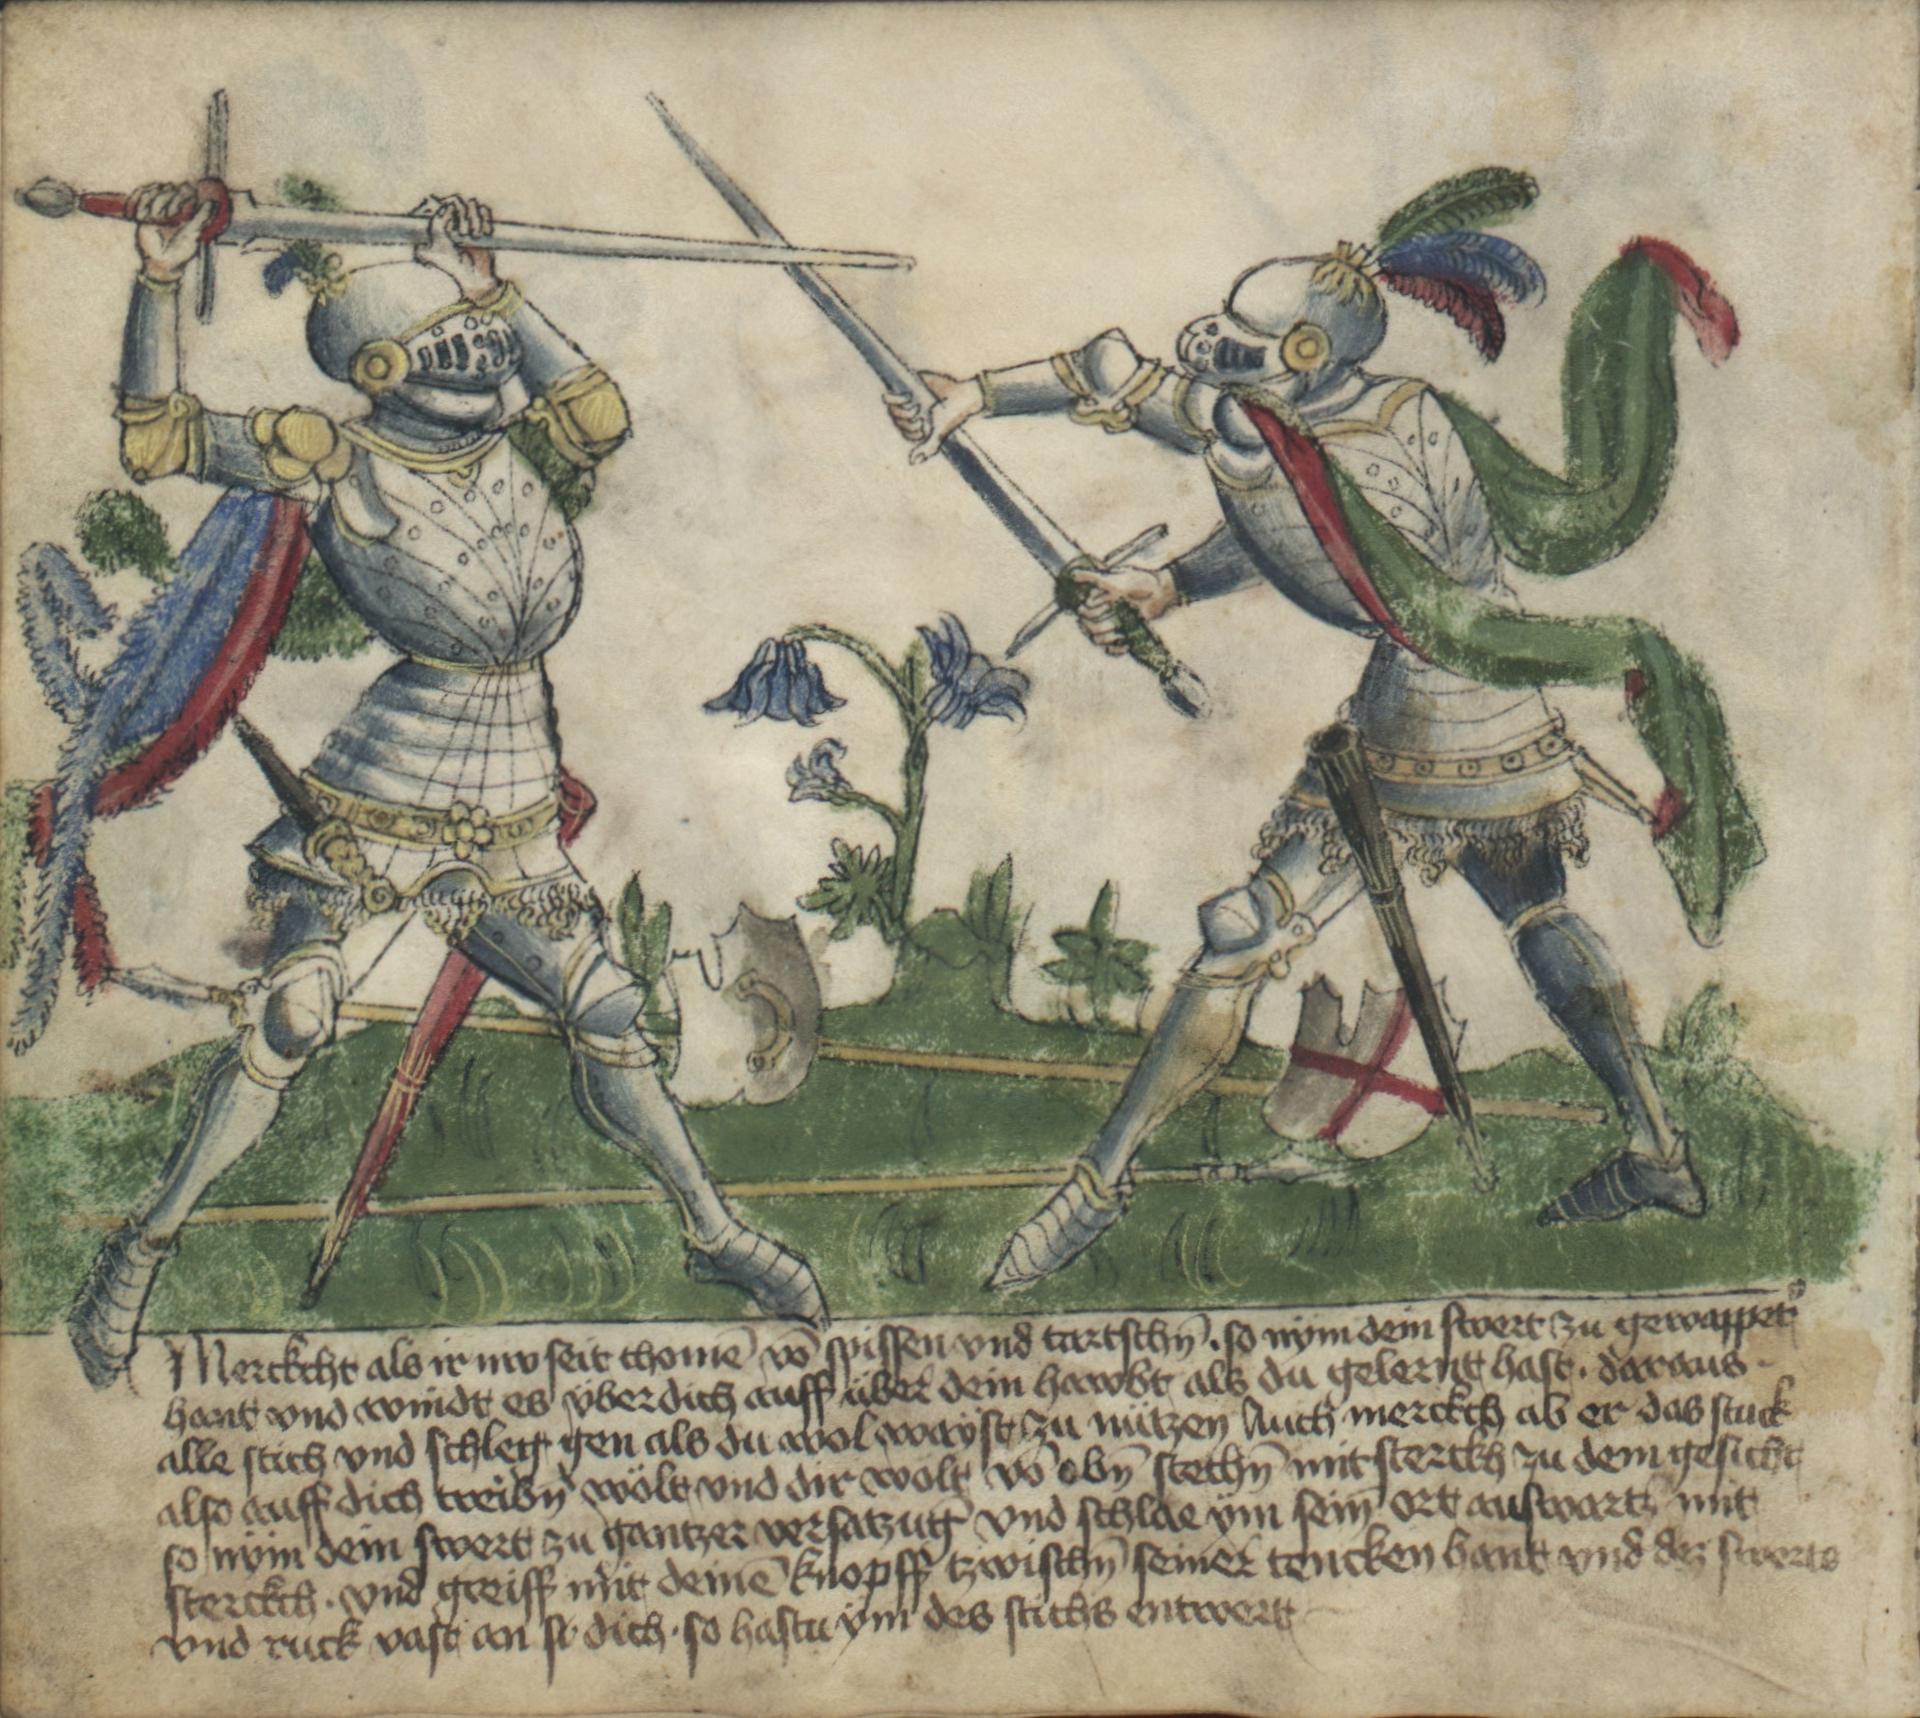 Merckcht als ir nw seit chomē vō spissen vnd tartschn̄ · so nÿm dein swert zu gewappet
hant vnd windt es vber dich auff über dein hawbt als du gelernt hast · daraus
alle stich vnd schleg gen als du wol wayst zu nützen Auch merckch ab er das stuck
also auff dich treibn̄ wölt vnd dir wolt vō obn̄ stechn̄ mit sterckh zu dem gesicht
so nÿm dein swert zu gantzer versatzug vnd schlae ÿm sein ort auswartz mit
sterckch · vnd greiff mit deinē knopff tzwischn̄ seiner tencken hant vnd des swerts
vnd ruck vast an dich · so hastu ÿm des stichs entwert